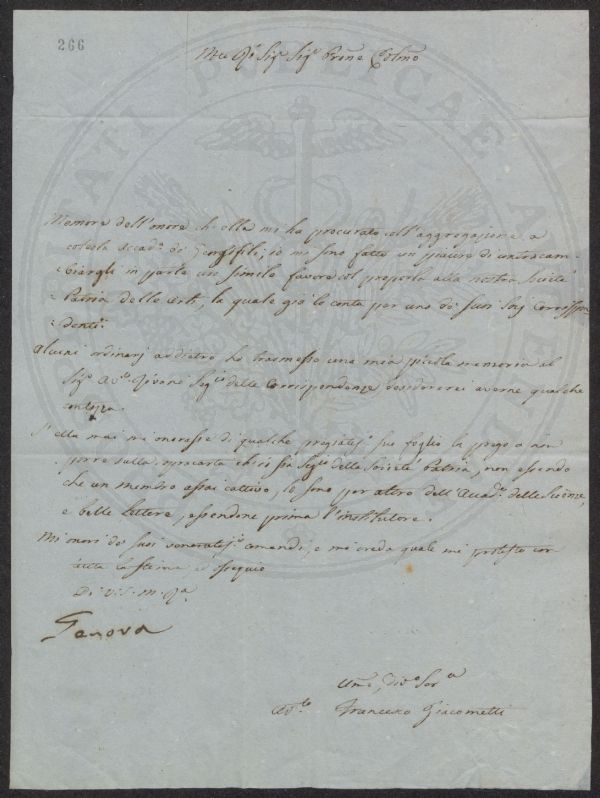 266
Mce Sig.r Sig.r Prõne Colmo
Memore dell'onore ch'ella mi ha procurato coll'aggregazione a
cotesta Accad.a de' Georgofili, io mi sono fatto un piacere di contracam-
biargli in parte un simile favore col proporla alla nostra Società
Patria delle Arti, la quale già lo conta per uno de' suoi Sig.i Corrispon-
denti.
Alcuni ordinarj addietro ho trasmesso una mia piccola memoria al
Sig.r Av.to Seg.o delle Corrispondenze desidererei averne qualche
contezza.
S'ella mai mi onorasse di qualche pregiatis.o suo foglio la prego a non
porre sulla sopracarta ch'io sia Seg.o della Società Patria, non essendo
che un membro assai cattivo, lo sono per altro dell'Accad.a delle Scienze,
e belle Lettere, essendone prima l'institutore.
Mi onori de' suoi veneratis.i comandi, e mi creda quale mi protesto con
tutta la stima ed ossequio
Di V. S. M.
Genova
Um̃o, Div.o Ser.e
Av.to Francesco Giacometti
UTILITATI PUBLICAE